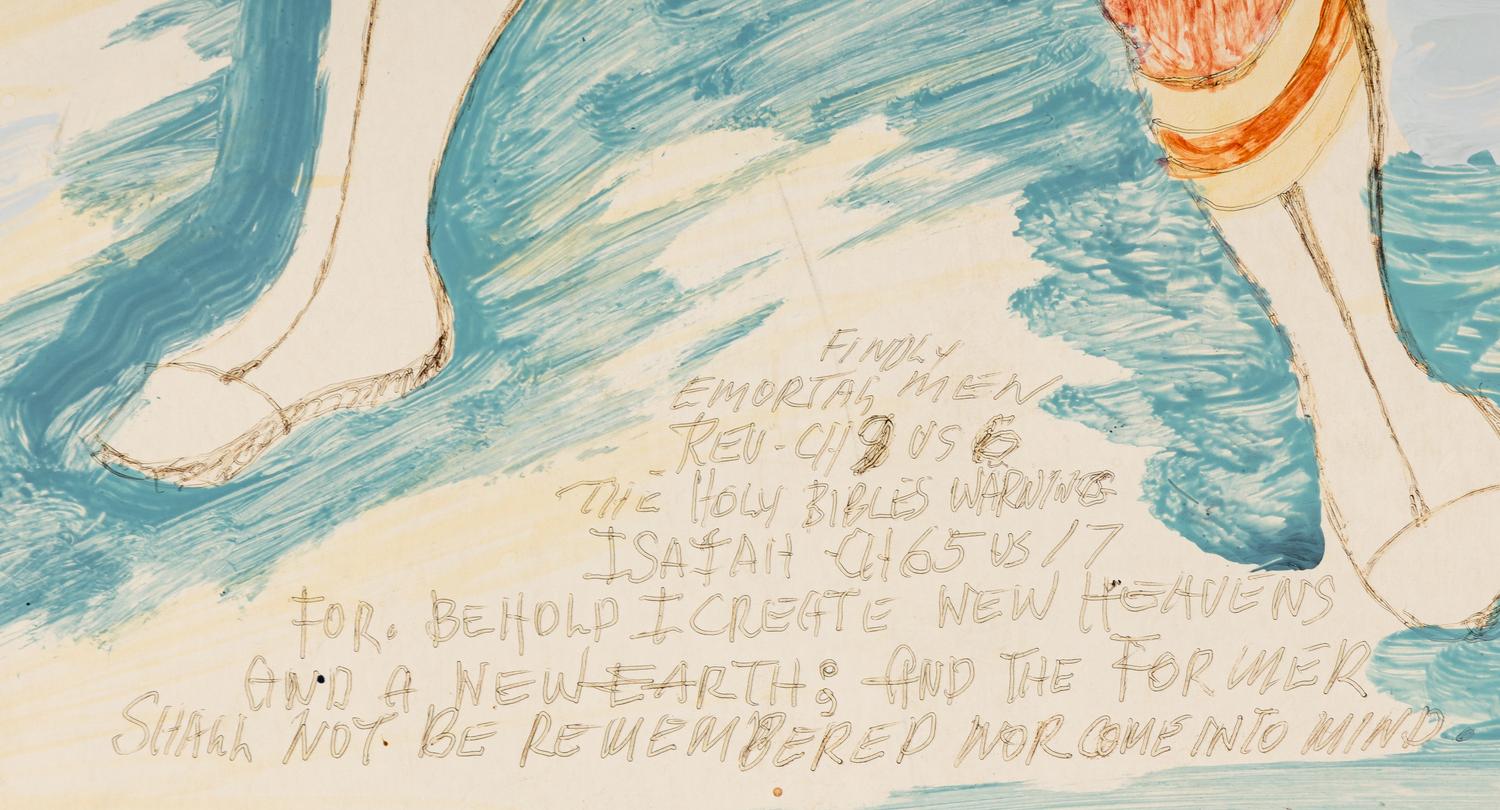 FINDLY
EMORTAL MEN
REV-CH 9 VS 6
THE HOLY BIBLES WARNING
ISAIAH CH 65 VS 17
FOR. BEHOLD I CREATE NEW HEAVENS
AND A NEW EARTH; AND THE FORMER
SHALL NOT BE REMEMBERED NOR COME INTO MIND.